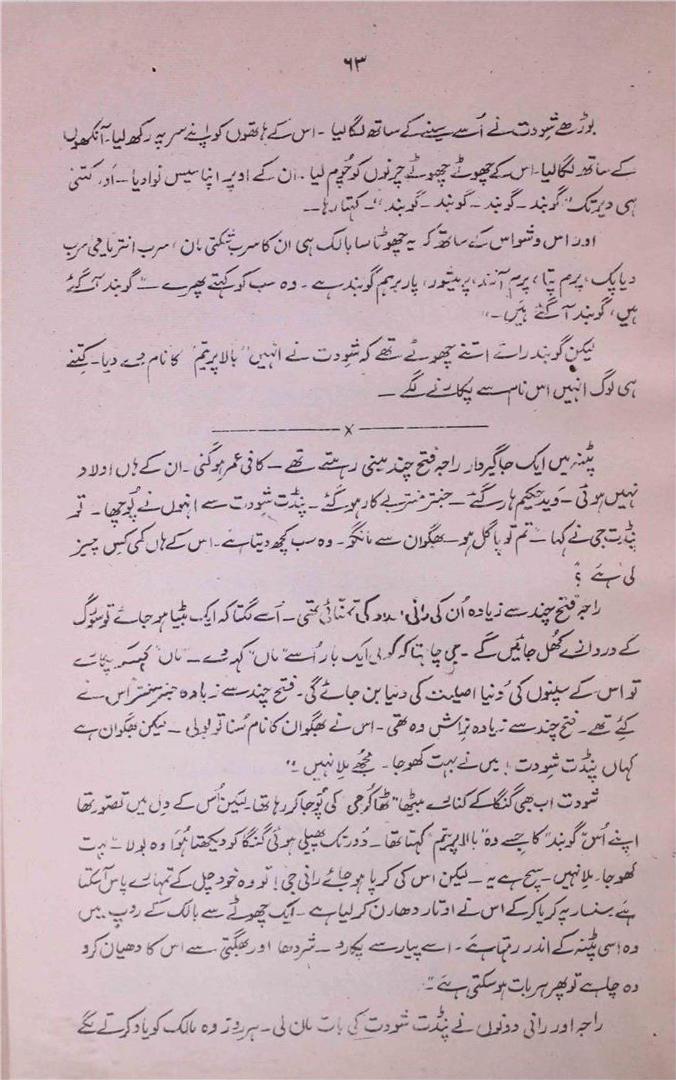 ۶۳
بوڑھے شِودت نے اُسے سینے کے ساتھ لگا لیا۔ اس کے ہاتھوں کو اپنے سر پہ رکھ لیا۔ آنکھوں
کے ساتھ لگا لیا۔ اس کے چھوٹے چھوٹے چرنوں کو چُوم لیا۔ ان کے اوپر اپنا سیس نوا دیا — اور کتنی
ہی دیر تک "گوبند۔ گوبند۔ گوبند۔ گوبند"۔ کہتا رہا۔۔
اور اس وشواس کے ساتھ کہ یہ چھوٹا سا بالک ہی ان کا سرب شکتی مان، سرب انتریامی سرب
دیاپک، پرم پتا، پرم آنند، پرمیشور، پار برہم گوبند ہے۔ وہ سب کو کہتے پھرے — گوبند آ گئے
ہیں، گوبند آ گئے ہیں۔"
لیکن گوبند رائے اتنے چھوٹے تھے کہ شِودت نے انہیں "بالا پریتم" کا نام دے دیا۔ کتنے
ہی لوگ انہیں اس نام سے پکارنے لگے —
x
پٹنہ میں ایک جاگیردار راجہ فتح چند مینی رہتے تھے — کافی عمر ہو گئی۔ ان کے ہاں اولاد
نہیں ہوئی۔ وید حکیم ہار گئے — جنتر منتر بے کار ہو گئے۔ پنڈت شِودت سے انہوں نے پوچھا۔ تو
پنڈت جی نے کہا — تم تو پاگل ہو — بھگوان سے مانگو۔ وہ سب کچھ دیتا ہے۔ اس کے ہاں کمی کس چیز
لی ہے ؟
راجہ فتح چند سے زیادہ اُن کی رانی اولاد کی تمنائی تھی۔ اُسے لگتا کہ ایک بیٹا ہو جائے تو سورگ
کے دروازے کھُل جائیں گے۔ جی چاہتا کہ کوئی ایک بار اُسے "ماں" کہہ دے — "ماں" کہہ کر پکارے
تو اس کے سپنوں کی دُنیا اصلیت کی دنیا بن جائے گی۔ فتح چند سے زیادہ جنتر منتر اس نے
کئے تھے۔ فتح چند سے زیادہ نراش وہ تھی۔ اس نے بھگوان کا نام سُنا تو بولی — لیکن بھگوان ہے
کہاں پنڈت شِودت! میں نے بہت کھوجا۔ مجھے ملا نہیں۔"
شودت اب بھی گنگا کے کنارے بیٹھا "ٹھاکر جی" کی پُوجا کر رہا تھا۔ لیکن اُس کے دِل میں تصور تھا
اپنے اُس "گوبند" کا جسے وہ "بالا پریتم" کہتا تھا۔ دُور تک پھیلی ہوئی گنگا کو دیکھتا ہُوا وہ بولا — بہت
کھوجا۔ ملا نہیں۔ سچ ہے یہ — لیکن اس کی کرپا ہو جائے رانی جی! تو وہ خود چل کے تمہارے پاس آ سکتا
ہے سنسار پہ کرپا کر کے اس نے اوتار دھارن کر لیا ہے۔ ایک چھوٹے سے بالک کے روپ میں
وہ اِسی پٹنہ کے اندر رہتا ہے۔ اسے پیار سے پکارو — شردھا اور بھگتی سے اس کا دھیان کرو
وہ چاہے تو پھر ہر بات ہو سکتی ہے۔"
راجہ اور رانی دونوں نے پنڈت شودت کی بات مان لی۔ ہر روز وہ مالک کو یاد کرتے لگے